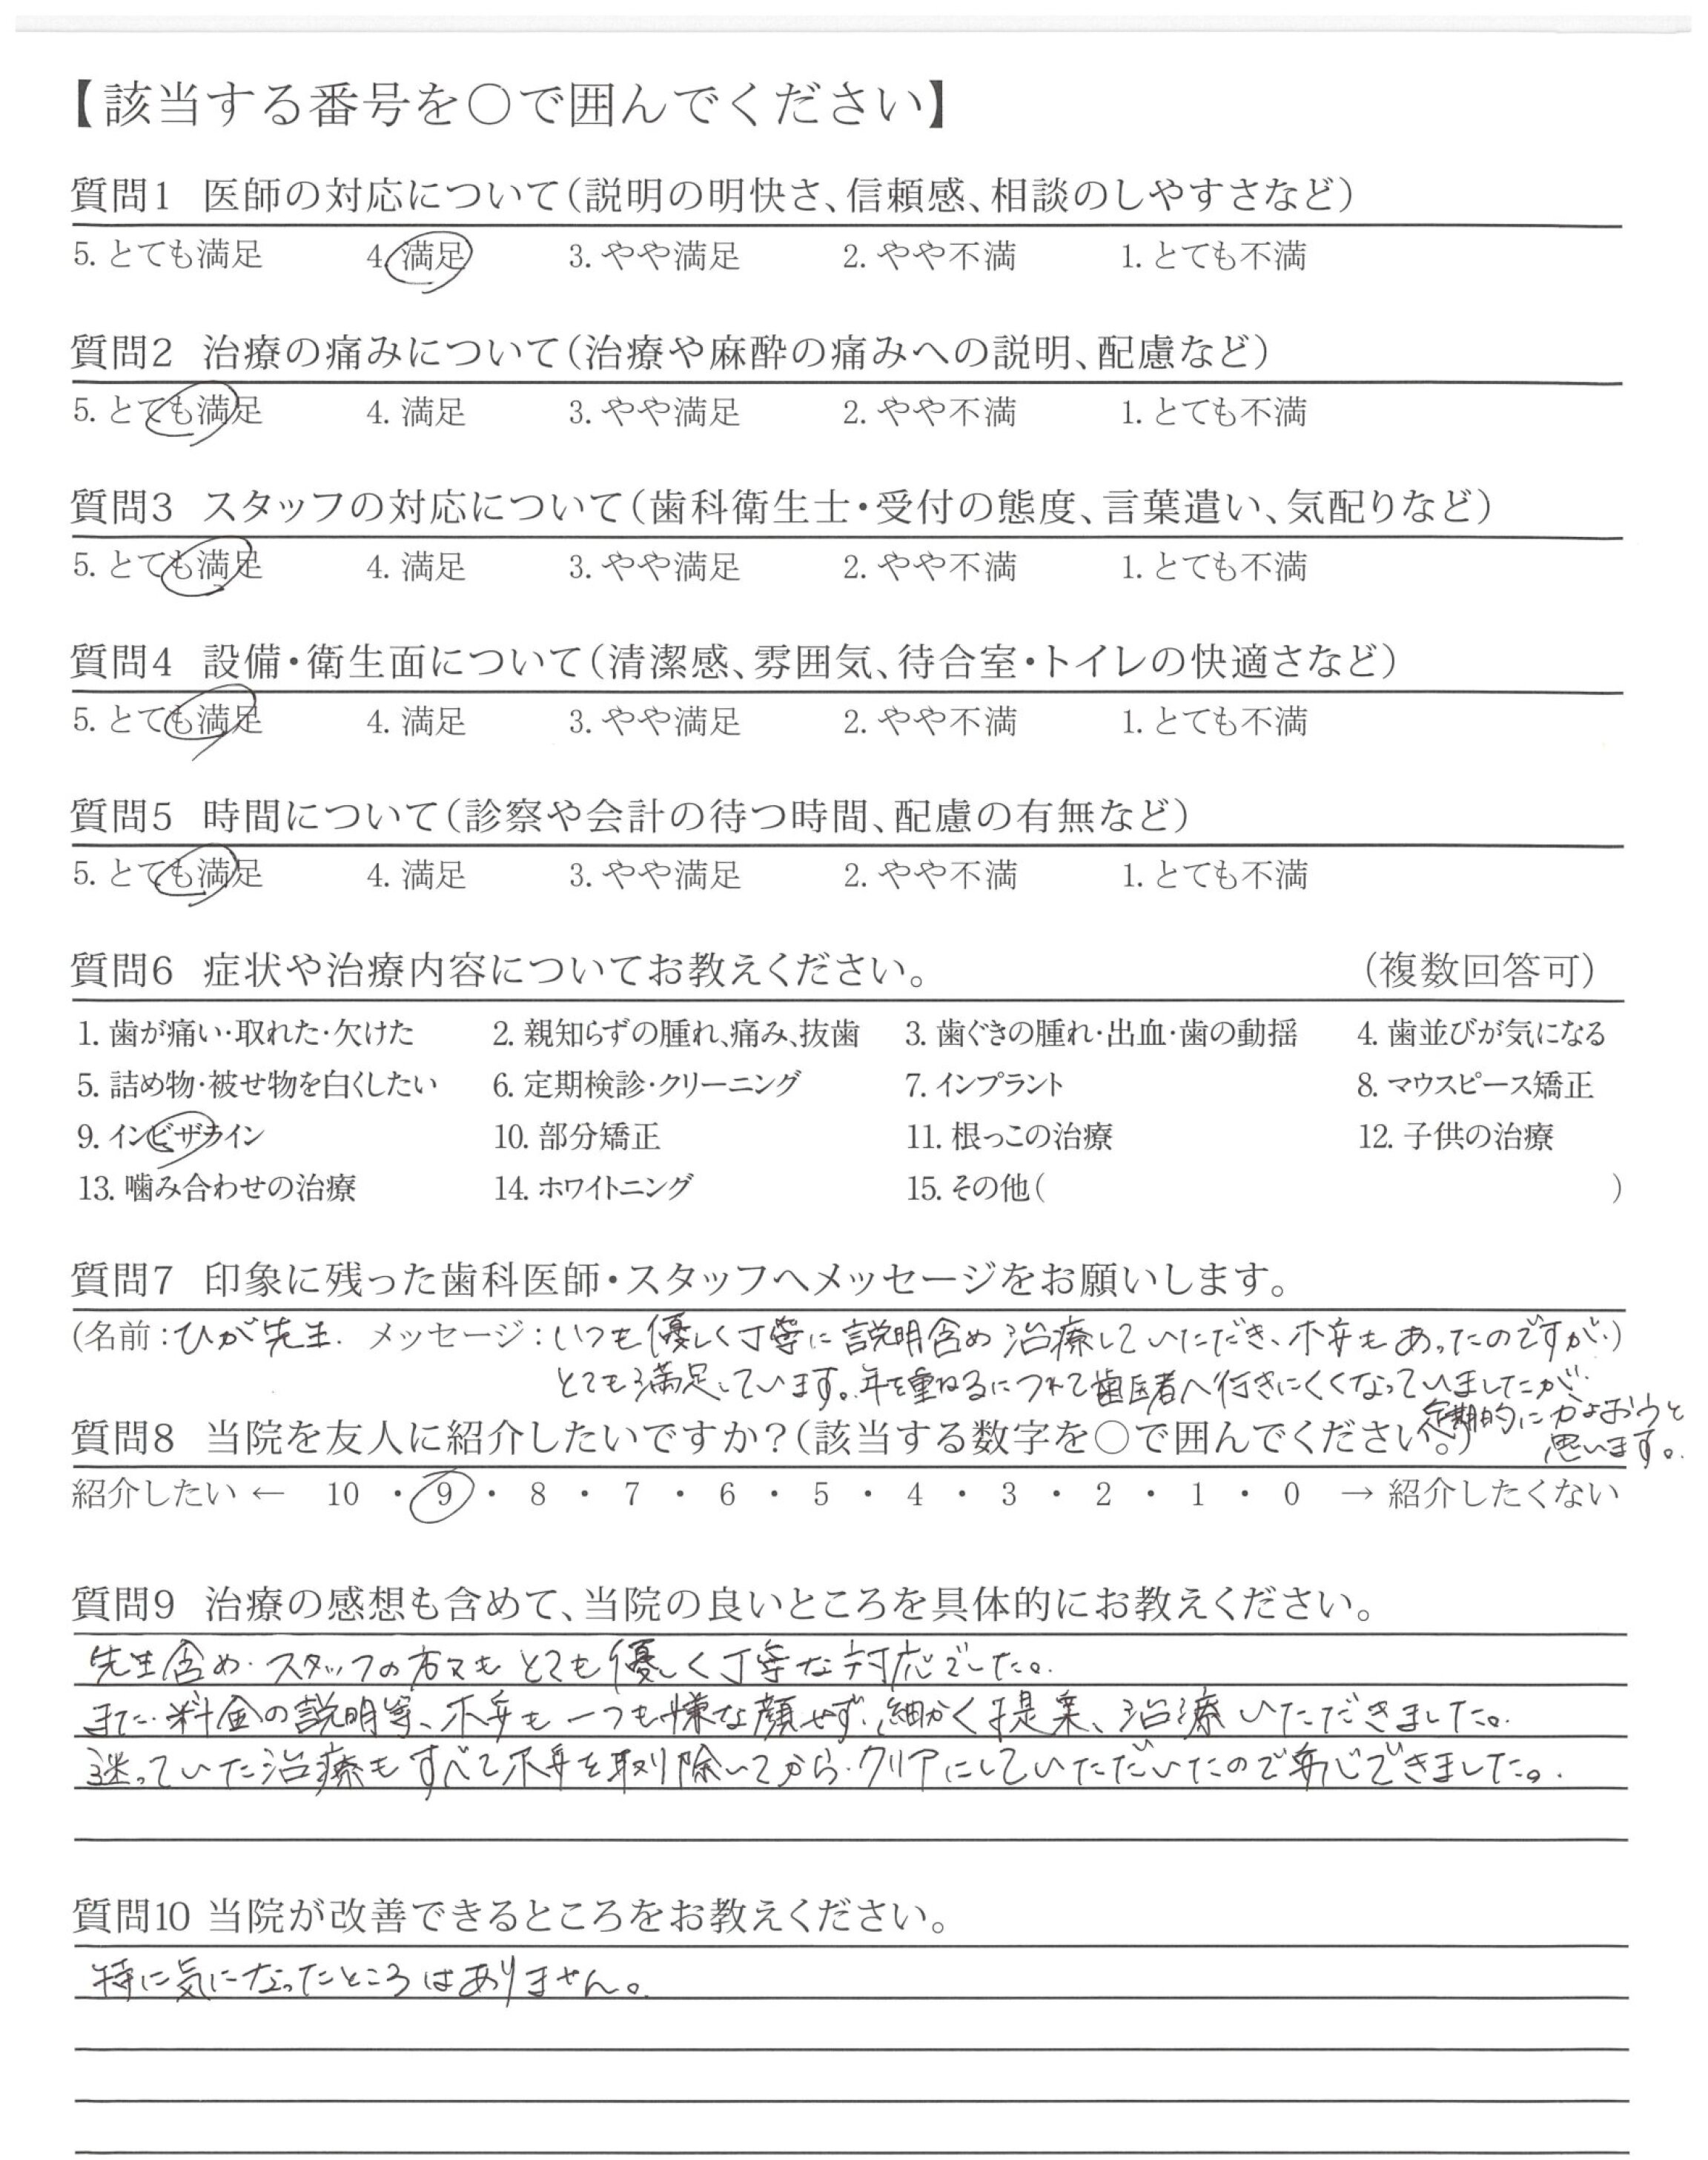 【該当する番号を〇で囲んでください】
質問1 医師の対応について（説明の明快さ、信頼感、相談のしやすさなど）
5. とても満足 4. 満足 3. やや満足 2. やや不満 1. とても不満
質問2 治療の痛みについて（治療や麻酔の痛みへの説明、配慮など）
5. とても満足 4. 満足 3. やや満足 2. やや不満 1. とても不満
質問3 スタッフの対応について（歯科衛生士・受付の態度、言葉遣い、気配りなど）
5. とても満足 4. 満足 3. やや満足 2. やや不満 1. とても不満
質問4 設備・衛生面について（清潔感、雰囲気、待合室・トイレの快適さなど）
5. とても満足 4. 満足 3. やや満足 2. やや不満 1. とても不満
質問5 時間について（診察や会計の待つ時間、配慮の有無など）
5. とても満足 4. 満足 3. やや満足 2. やや不満 1. とても不満
質問6 症状や治療内容についてお教えください。 （複数回答可）
1. 歯が痛い・取れた・欠けた 2. 親知らずの腫れ、痛み、抜歯 3. 歯ぐきの腫れ・出血・歯の動揺 4. 歯並びが気になる
5. 詰め物・被せ物を白くしたい 6. 定期検診・クリーニング 7. インプラント 8. マウスピース矯正
9. インビザライン 10. 部分矯正 11. 根っこの治療 12. 子供の治療
13. 噛み合わせの治療 14. ホワイトニング 15. その他（ ）
質問7 印象に残った歯科医師・スタッフへメッセージをお願いします。
（名前：ひが先生. メッセージ：いつも優しく丁寧に説明含め治療していただき、不安もあったのですが、）
とても満足しています。年を重ねるにつれて歯医者へ行きにくくなっていましたが、
定期的にかよおうと
思います。
質問8 当院を友人に紹介したいですか？（該当する数字を〇で囲んでください。）
紹介したい ← 10 ・ 9 ・ 8 ・ 7 ・ 6 ・ 5 ・ 4 ・ 3 ・ 2 ・ 1 ・ 0 → 紹介したくない
質問9 治療の感想も含めて、当院の良いところを具体的にお教えください。
先生含め、スタッフの方々もとても優しく丁寧な対応でした。
また、料金の説明等、不安も一つも嫌な顔せず、細かく提案、治療いただきました。
迷っていた治療もすべて不安を取り除いてから、クリアにしていただいたので安心できました。
質問10 当院が改善できるところをお教えください。
特に気になったところはありません。